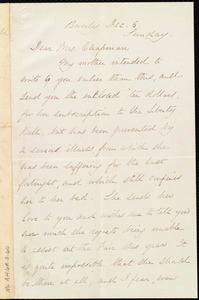 Dec. 6
Sunday.
Dear Mrs. Chapman
My mother intended to
write to you earlier than this, and
send you the enclosed ten dollars,
for her subscription to the Liberty
Bell, but has been prevented by
a second illness from which she
has been suffering for the last
fortnight, and which still confines
her to her bed. She sends her
love to you and wishes me to tell
you how much she regrets being unable
to assist at the Fair this year. It
is quite impossible that she should
be there at all, and I fear, even